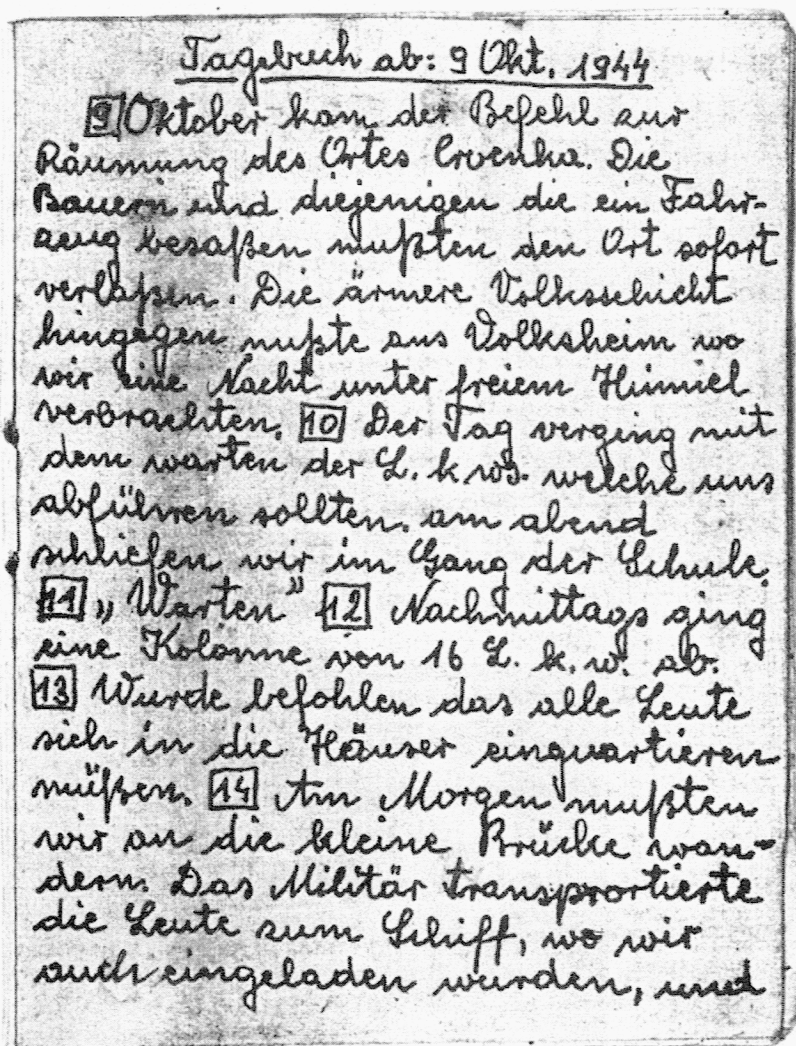 Tagebuch ab: 9 Okt. 1944
9 Oktober kam der Befehl zur
Räumung des Ortes Crvenka. Die
Bauern und diejenigen die ein Fahr-
zeug besaßen mußten den Ort sofort
verlaßen. Die ärmere Volksschicht
hingegen mußte ins Volksheim wo
wir eine Nacht unter freiem Himmel
verbrachten. 10 Der Tag verging mit
dem warten der L. k ws. welche uns
abführen sollten. am abend
schliefen wir im Gang der Schule.
11 „Warten” 12 Nachmittags ging
eine Kolonne von 16 L. k. w. ab.
13 Wurde befohlen das alle Leute
sich in die Häuser einquartieren
müßen. 14 Am Morgen mußten
wir an die kleine Brücke wan-
dern. Das Militär transprortierte
die Leute zum Schiff, wo wir
auch eingeladen wurden, und